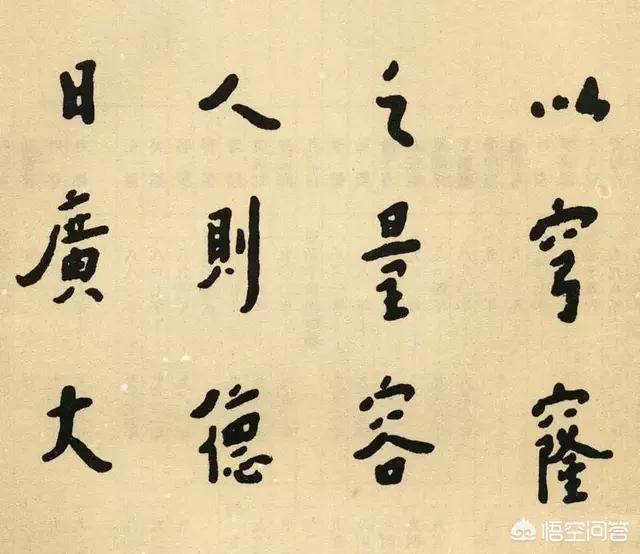 以穹窿
之量容
人則德
日廣大
悟空问答